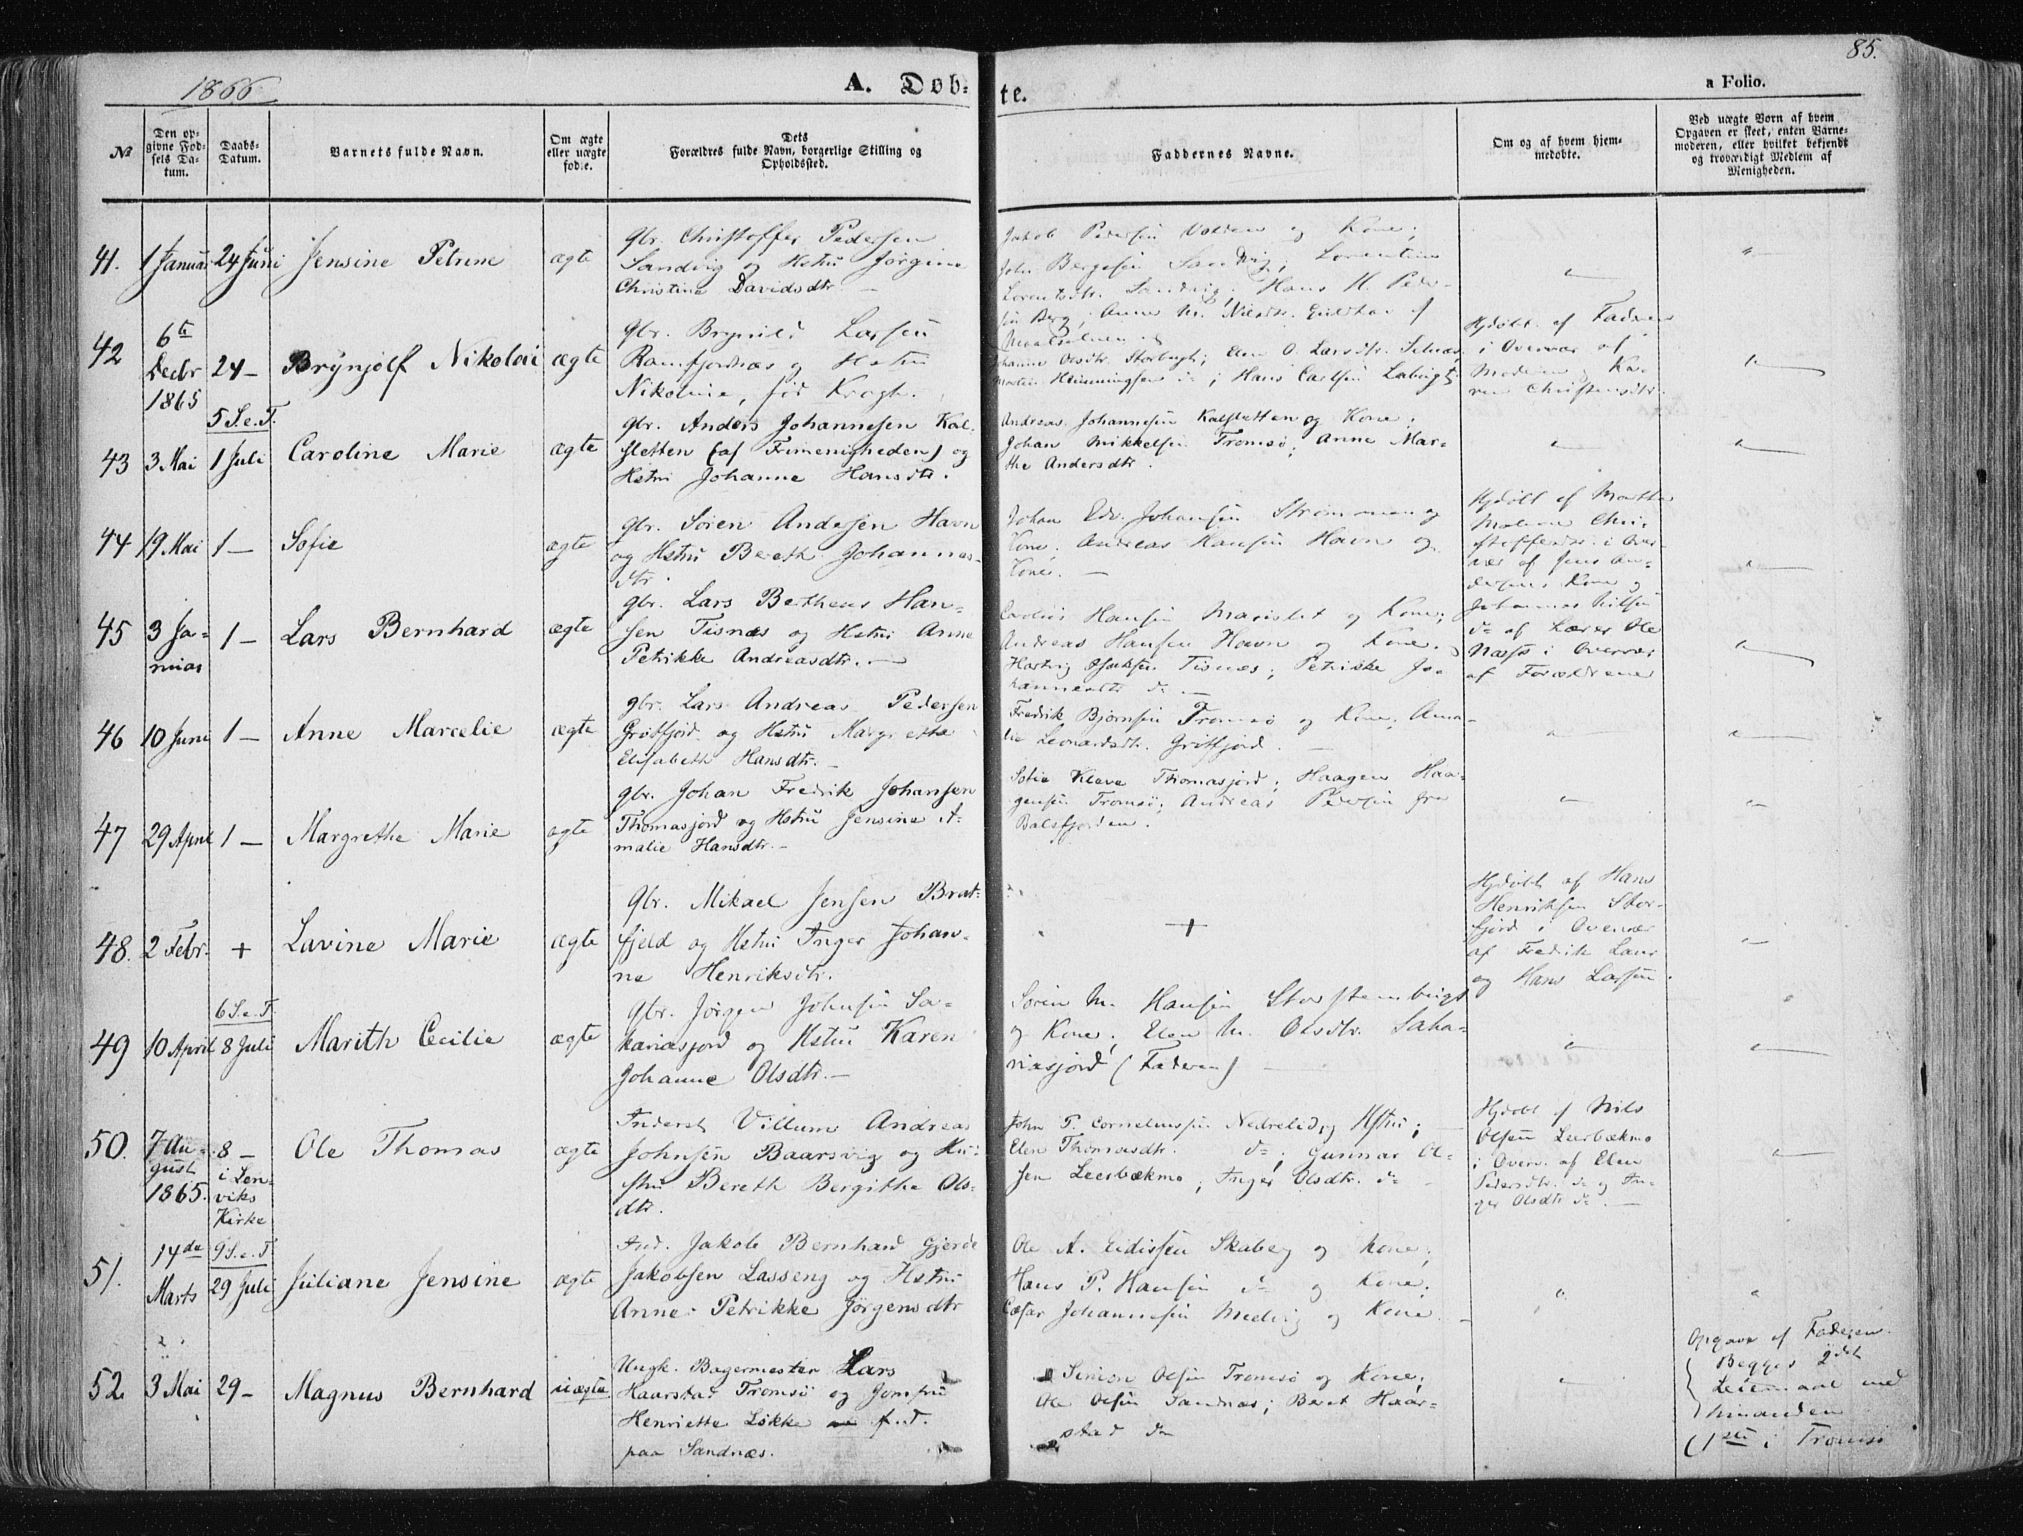 1866
A. Døb-
te.
85.
a Folio.
№
Den op-
givne Fød-
sels Da-
tum.
Daabs-
Datum.
Barnets fulde Navn.
Om ægte
eller uægte
fød:e.
Dets
Forældres fulde Navn, borgerlige Stilling og
Opholdssted.
Faddernes Navne.
Om og af hvem hjem-
medøbte.
Ved uægte Børn af hvem
Opgaven er skeet, enten Barne-
moderen, eller hvilket bekjendt
og troværdigt Medlem af
Menigheden.
41. 1 Januar 24 Juni Jensine Petrine ægte
Gbr. Christoffer Pedersen
Sandvig og Hstru Jørgine
Christine Davidsdtr. —
Jakob Pedersen Volden og Kone;
John Bergesen Sandvig; Lorentine
Lorentsdtr. Sandvig; Hans H. Peder-
sen Berg; Anne M. Nilsdtr.
42 6te Decbr 1865 24 — Brynjolf Nikolai ægte
Gbr. Brynild Larsen
Ramfjordnæs og Hstru
Nikoline, fød Krogh.
Johanne Olsdtr. Storbugt; Elen O. Larsdtr. Selnæs
Morten Henningsen do; Hans Carlsen
Hjdøbt af Faderen
i Overvær af
Moderen, Ka-
ren Christensdtr.
5 S. e. T.
43 3 Mai 1 Juli Caroline Marie ægte
Gbr. Anders Johannesen Kal-
sletten (af Frimenigheden) og
Hstru Johanne Hansdtr.
Andreas Johannesen Kalsletten og Kone;
Johan Mikkelsen Tromsø; Anne Mar-
the Andersdtr.
44 19 Mai 1 — Sofie ægte
Gbr. Sören Andersen Havn
og Hstru Bereth Johannes-
dtr.
Johan Edv. Johansen Strømmen og
Kone; Andreas Hansen Havn og
Kone. —
Hjdøbt af Marthe
Malene Chri-
stoffersdtr. i Over-
vær af Jens An-
dersens Kone og
Johannes Nilsen
45 3 Ja-
nuar 1 — Lars Bernhard ægte
Gbr. Lars Betheus Han-
sen Tisnæs og Hstru Anne
Petrikke Andreasdtr. —
Hansen og Kone;
Andreas Hansen Havn og Kone.
Hartvig Tisnæs; Petrikke Jo-
hannesdtr do —
do af Lærer Ole
Næss i Overvær
af Forældrene
46 10 Juni 1 — Anne Marcelie ægte
Gbr. Lars Andreas Pedersen
Grøtfjord og Hstru Margrethe
Elisabeth Hansdtr. —
Fredrik Bjørnsen Tromsø og Kone; Ama-
lie Leonardsdtr. Grøtfjord. —
47 29 April 1 — Margrethe Marie ægte
Gbr. Johan Fredrik Johansen
Thomasjord og Hstru Jensine A-
malie Hansdtr. —
Sofie Kleve Thomasjord; Haagen Haa-
gensen Tromsø; Andreas Pedersen fra
Balsfjorden.
48. 2 Febr. + Lavine Marie ægte
Gbr. Mikael Jensen Brat-
fjeld og Hstru Inger Johan-
ne Henriksdtr.
+
Hjdøbt af Hans
Henriksen Stor-
fjord i Overvær
af Fredrik Laur
og Hans Larsen.
6 S. e. T.
49 10 April 8 Juli Marith Cecilie ægte
Gbr. Jörgen Johnsen Sa-
kariasjord og Hstru Karen
Johanne Olsdtr. —
Sören M. Hansen Storstembugt
og Kone; Elen M. Olsdtr. Saka-
riasjord (Faderen) —
50. 7 Au-
gust
1865. 8 —
i Len-
viks
Kirke Ole Thomas ægte
Inderst Villum Andreas
Johnsen Baarsvig og Hu-
stru Bereth Bergithe Ols-
dtr.
John P. Corneliussen Nedrelid og Hstru;
Elen Thomasdtr. do; Gunnar Ol-
sen Leerbækmo; Inger Olsdtr. do
Hjdøbt af Nils
Olsen Leerbækmo
i Overv. af Elen
Pedersdtr. do og In-
ger Olsdtr do. —
9 S. e. T.
51. 14de Marts 29 Juli Juliane Jensine ægte
Ind. Jakob Bernhard Gjerde
Jakobsen Lasseng og Hstru
Anne Petrikke Jørgensdtr
Ole A. Eidissen Skaberg og Kone;
Hans P. Hansen do og Kone;
Cæsar Johannesen Medvig og Kone. —
52 3 Mai 29 — Magnus Bernhard uægte
Ungk. Bagermester Lars
Haarstad Tromsö og Jomfru
Henriette Løkke Ind.
paa Sandnæs.
Simon Olsen Tromsø og Kone;
Ole Olsen Sandnæs; Beret Haar-
stad do
Opgave af Faderen.
Begges 2det
Leiermaal med
hinanden
(1ste i Tromsø